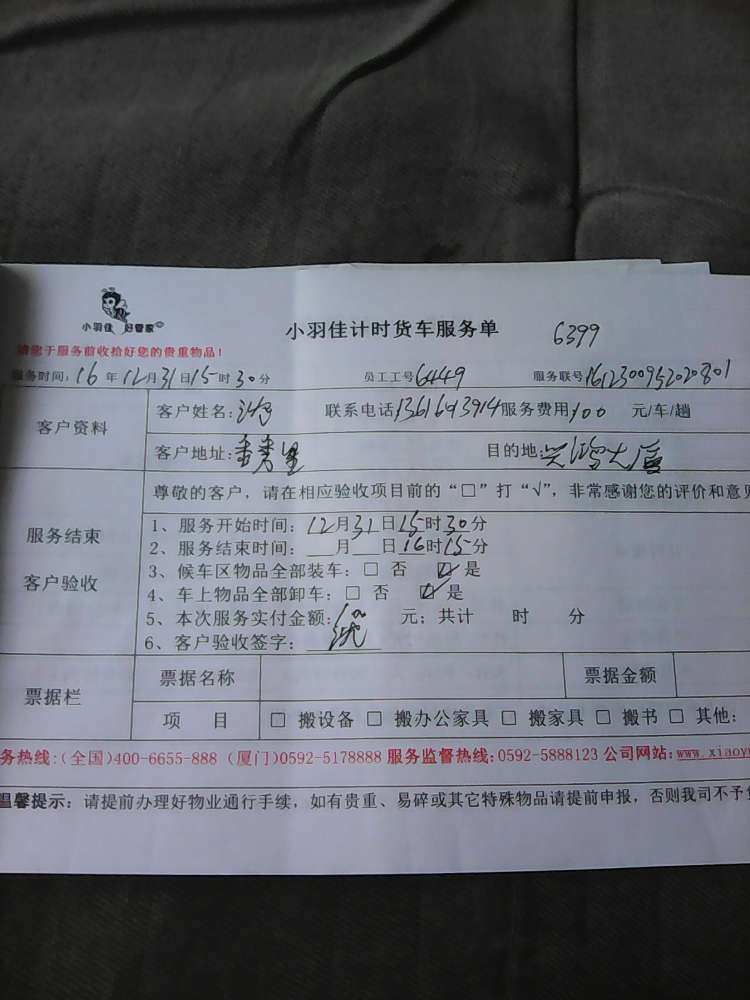 小羽佳 好管家
小羽佳计时货车服务单 6399
请您于服务前收拾好您的贵重物品！
服务时间：16年12月31日15时30分 员工工号6449 服务联号1612300952020801
客户资料
客户姓名： 联系电话1361693914服务费用100 元/车/趟
客户地址：秀里 目的地：兴鸿大厦
尊敬的客户，请在相应验收项目前的“□”打“√”，非常感谢您的评价和意见
服务结束
客户验收
1、服务开始时间：12月31日15时30分
2、服务结束时间：___月___日16时15分
3、候车区物品全部装车：□ 否 ☑ 是
4、车上物品全部卸车：□ 否 ☑ 是
5、本次服务实付金额：100 元；共计 时 分
6、客户验收签字：
票据栏
票据名称 票据金额
项 目 □ 搬设备 □ 搬办公家具 □ 搬家具 □ 搬书 □ 其他：
务热线：(全国)400-6655-888 (厦门)0592-5178888 服务监督热线：0592-5888123 公司网站：www.xiaoy
温馨提示：请提前办理好物业通行手续，如有贵重、易碎或其它特殊物品请提前申报，否则我司不予